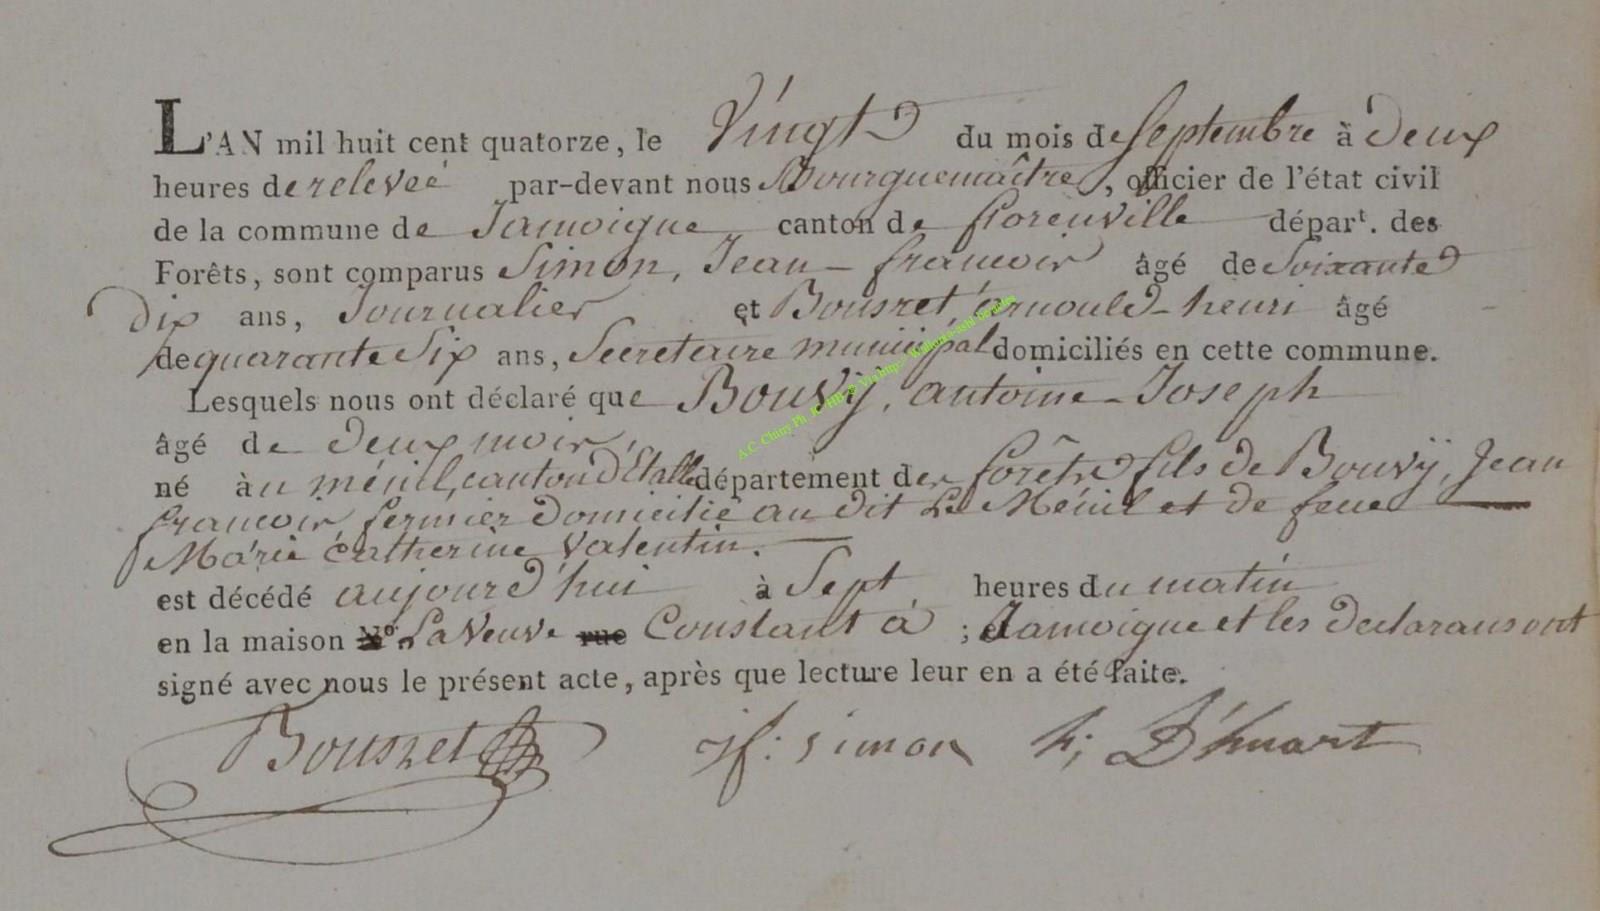 L'AN mil huit cent quatorze, le Vingt du mois de Septembre à deux
heures de relevée par-devant nous Bourguemaître, officier de l'état civil
de la commune de Jamoigne canton de florenville dépar^t. des
Forêts, sont comparus Simon, Jean-francois âgé de Soixante
dix ans, Journalier et Bousret ernould-henri âgé
de quarante Six ans, Secretaire municipal domiciliés en cette commune.
Lesquels nous ont déclaré que Bouvÿ, antoine-Joseph
âgé de deux mois,
né au ménil, canton d'Etalle département des forêts fils de Bouvÿ, Jean
francois fermier domicilié au dit Le Ménil et de feue
Marie catherine Valentin.
est décédé aujourd'hui à Sept heures du matin
en la maison N°. La Veuve rue Constant à ; Jamoigne et les declarans ont
signé avec nous le présent acte, après que lecture leur en a été faite.
Bousret jf: simon h; D'huart